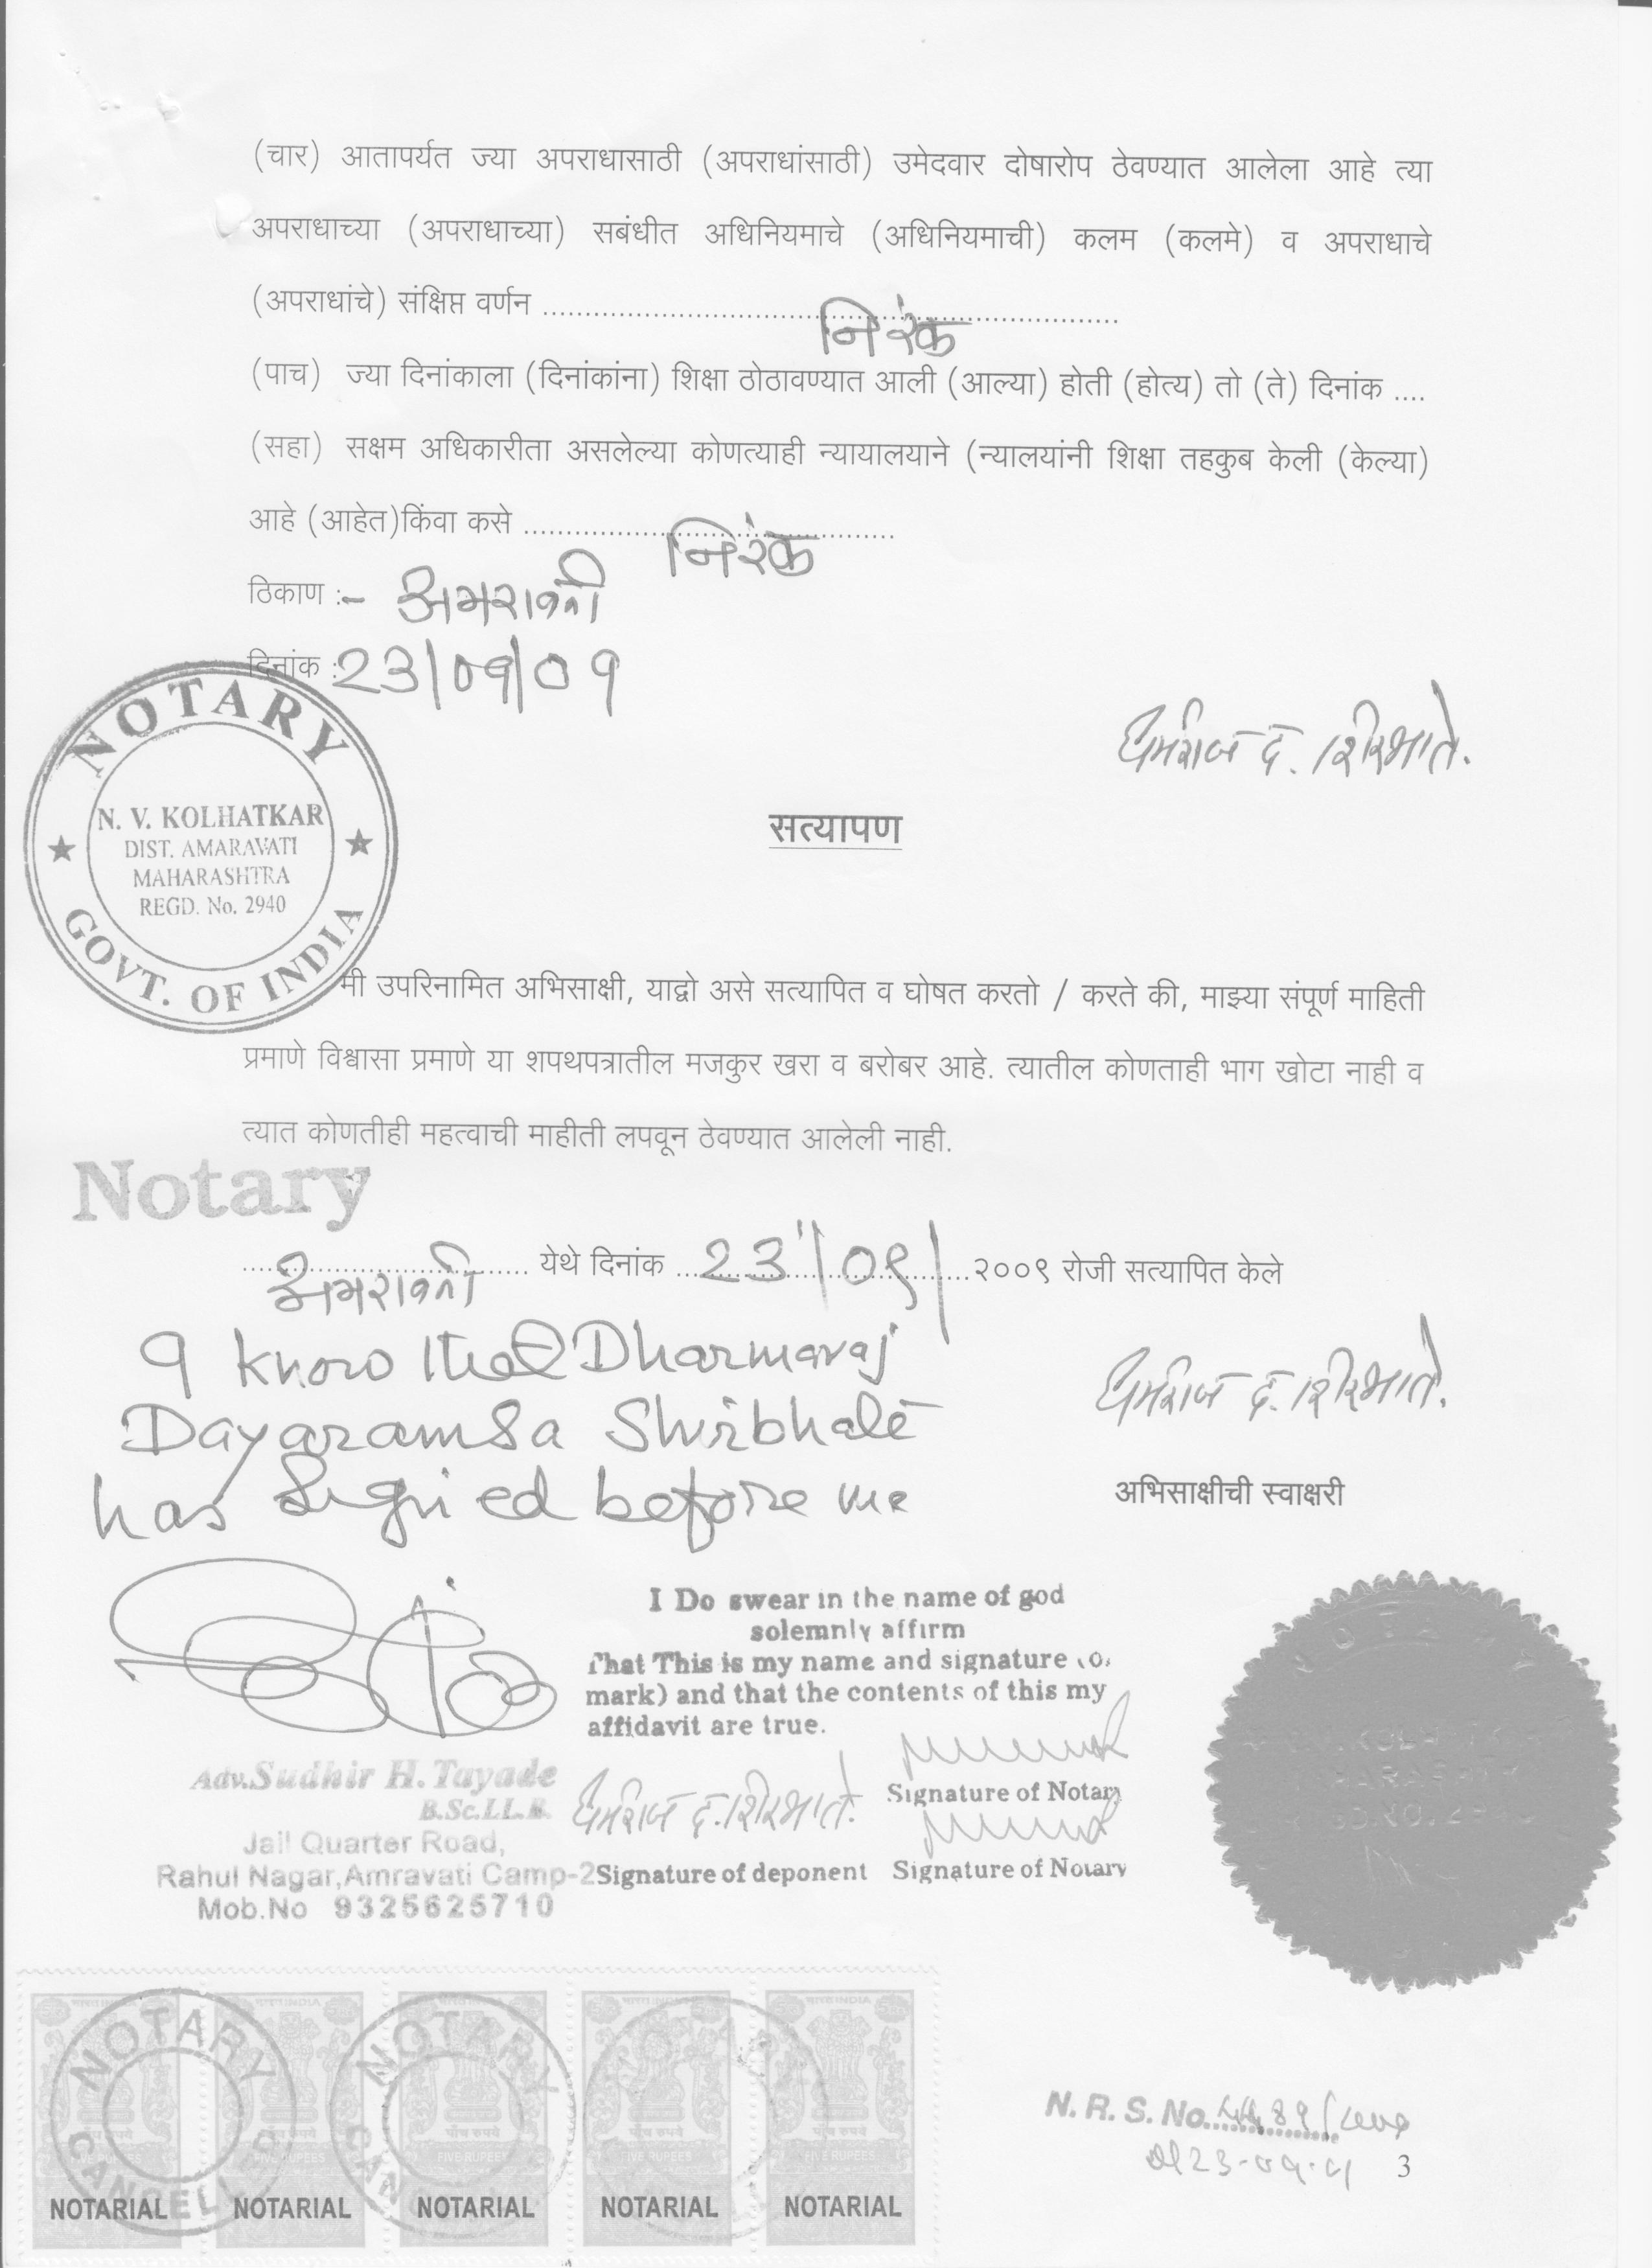 (चार) आतापर्यत ज्या अपराधासाठी (अपराधांसाठी) उमेदवार दोषारोप ठेवण्यात आलेला आहे त्या
अपराधाच्या (अपराधाच्या) सबंधीत अधिनियमाचे (अधिनियमाची) कलम (कलमे) व अपराधाचे
(अपराधांचे) संक्षिप्त वर्णन ..................................................................
निरंक
(पाच) ज्या दिनांकाला (दिनांकांना) शिक्षा ठोठावण्यात आली (आल्या) होती (होत्य) तो (ते) दिनांक ....
(सहा) सक्षम अधिकारीता असलेल्या कोणत्याही न्यायालयाने (न्यालयांनी शिक्षा तहकुब केली (केल्या)
आहे (आहेत)किंवा कसे ...........................................
निरंक
ठिकाण :- अमरावती
दिनांक : 23/09/09
NOTARY
N. V. KOLHATKAR
DIST. AMARAVATI
MAHARASHTRA
REGD. No. 2940
GOVT. OF INDIA
धर्मराज द. शिरभाते.
सत्यापण
मी उपरिनामित अभिसाक्षी, याद्वो असे सत्यापित व घोषत करतो / करते की, माझ्या संपूर्ण माहिती
प्रमाणे विश्वासा प्रमाणे या शपथपत्रातील मजकुर खरा व बरोबर आहे. त्यातील कोणताही भाग खोटा नाही व
त्यात कोणतीही महत्वाची माहीती लपवून ठेवण्यात आलेली नाही.
Notary
अमरावती येथे दिनांक 23/09/ २००९ रोजी सत्यापित केले
I know that Dharmaraj
Dayaramsa Shirbhate
has signed before me
धर्मराज द. शिरभाते.
अभिसाक्षीची स्वाक्षरी
I Do swear in the name of god
solemnly affirm
That This is my name and signature (or
mark) and that the contents of this my
affidavit are true.
Signature of Notary
Adv.Sudhir H. Tayade
B.Sc.LL.B.
Jail Quarter Road,
Rahul Nagar,Amravati Camp-2
Mob.No 9325625710
धर्मराज द. शिरभाते.
Signature of deponent Signature of Notary
NOTARY CANCELLED
NOTARY
भारत INDIA
पाँच रुपये
FIVE RUPEES
NOTARIAL NOTARIAL NOTARIAL NOTARIAL NOTARIAL
N. R. S. No.
3